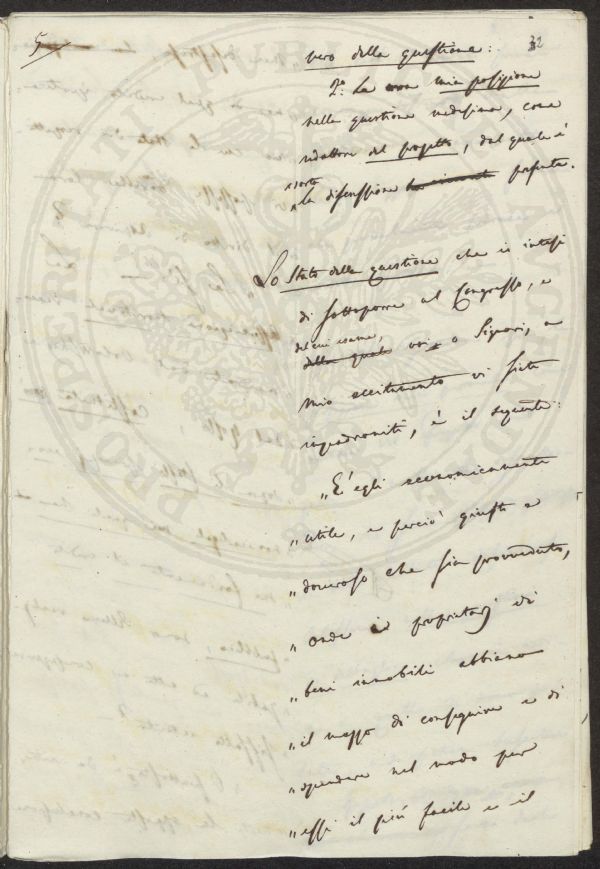 5
32
vero della questione:
2.° La mia posizione
nella questione medesima, come
redattore del progetto, dal quale è
sorta
la discussione presente.
Lo Stato della questione che si intese
di sottoporre al Congresso, e
del cui esame,
della quale voi, o Signori, a
mio eccitamento vi siete
impadroniti, è il seguente:
„E' egli economicamente
„utile, e perciò giusto e
„doveroso che sia provveduto,
„onde i proprietarj di
„beni immobili abbiano
„il mezzo di conseguire e di
„spendere nel modo per
„essi il più facile e il
PROSPERITATI PUBLICAE AUGENDAE